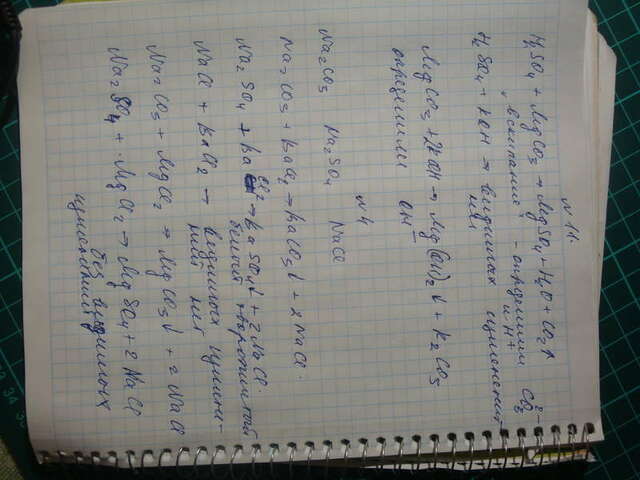 № 11.
H₂SO₄ + MgCO₃ → MgSO₄ + H₂O + CO₂↑
„вскипание" - определили CO₃²⁻
и H⁺
H₂SO₄ + KOH → видимых изменений
нет
MgCO₃ + 2KOH → Mg(OH)₂↓ + K₂CO₃
определили OH⁻
№ 4
Na₂CO₃ Na₂SO₄ NaCl
Na₂CO₃ + BaCl₂ → BaCO₃↓ + 2NaCl.
Na₂SO₄ + BaCl₂ → BaSO₄↓ + 2NaCl.
белый творожистый
NaCl + BaCl₂ → видимых измене-
ний нет
Na₂CO₃ + MgCl₂ → MgCO₃↓ + 2NaCl
Na₂SO₄ + MgCl₂ → MgSO₄ + 2NaCl
без видимых
изменений